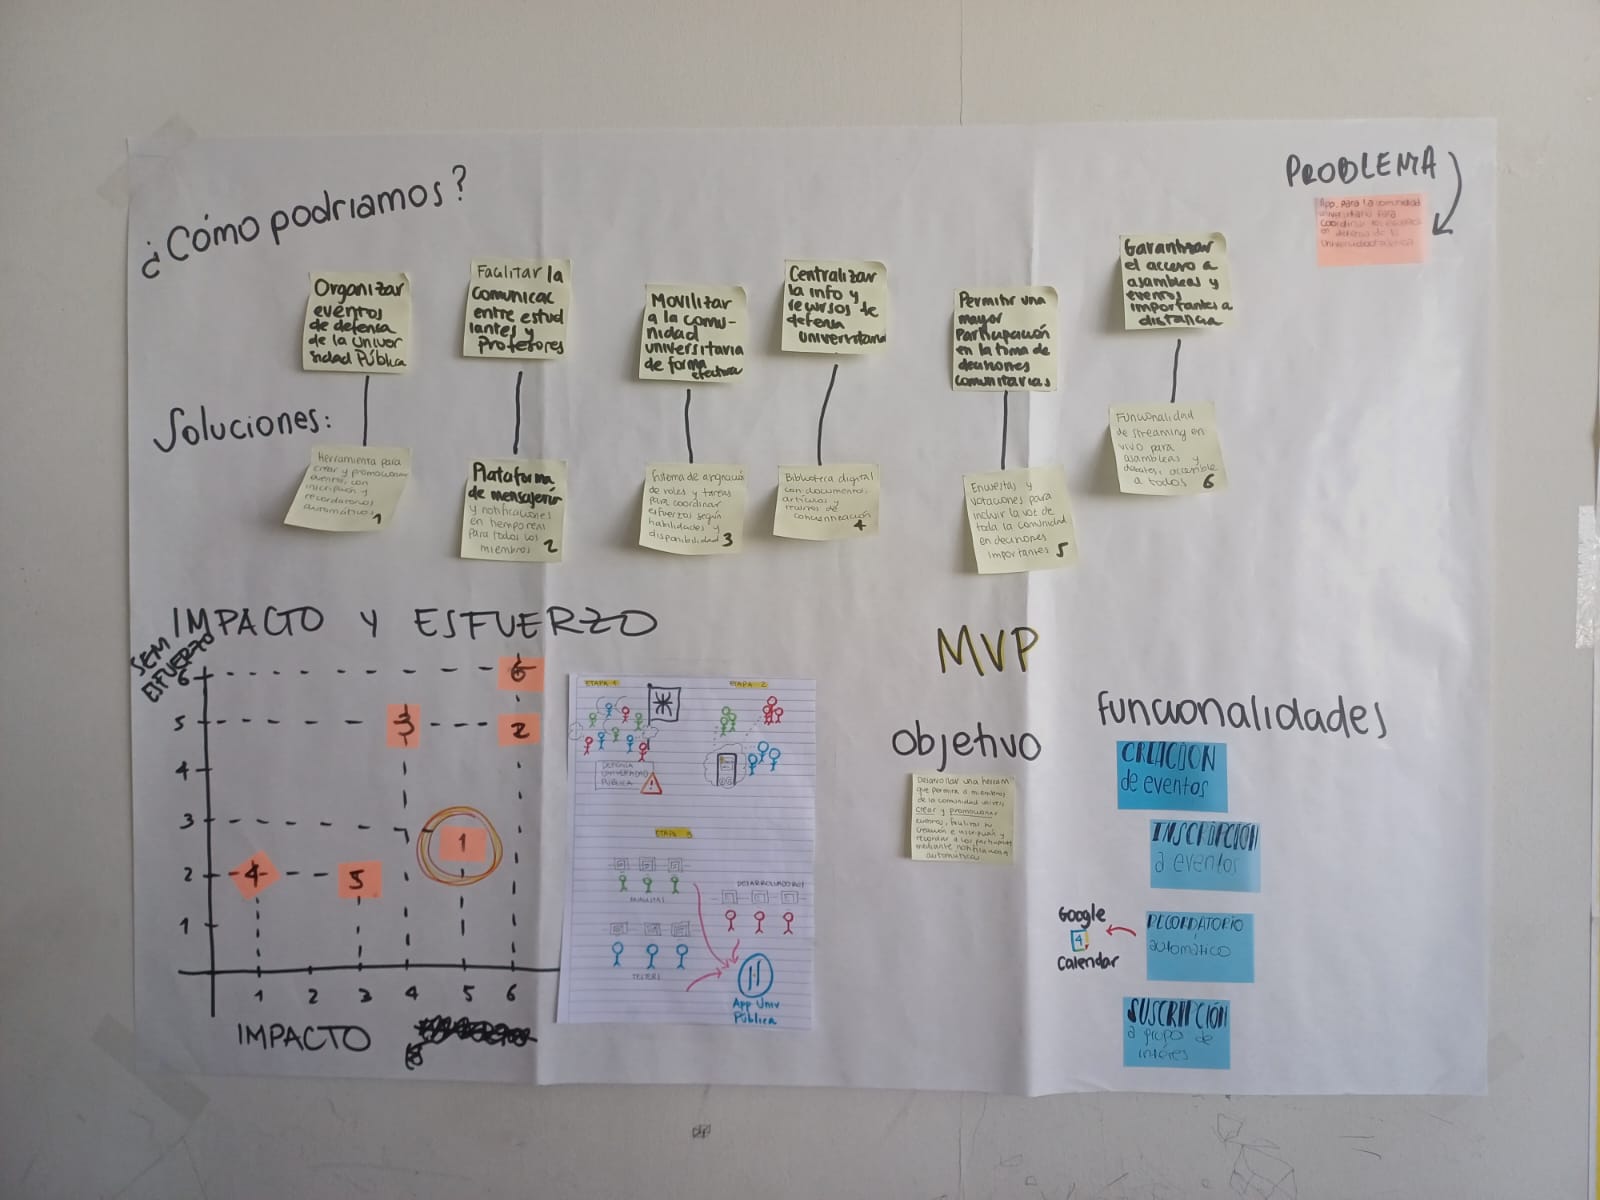 ¿Cómo podríamos?
PROBLEMA
App. para la comunidad
universitaria para
coordinar
en defensa de la
universidad pública
Organizar
eventos
de defensa
de la Univer
sidad Pública
Facilitar la
comunicac
entre estud
iantes y
Profesores
Movilizar
a la comu-
nidad
universitaria
de forma
efectiva
Centralizar
la info y
recursos de
defensa
universitaria
Permitir una
mayor
Participación
en la toma de
decisiones
comunitarias
Garantizar
el acceso a
asambleas y
eventos
importantes a
distancia
Soluciones:
Herramienta para
crear y promocionar
eventos, con
inscripción y
recordatorios
automáticos 1
Plataforma
de mensajería
y notificaciones
en tiempo real
para todos los
miembros 2
Sistema de asignación
de roles y tareas
para coordinar
esfuerzos según
habilidades y
disponibilidad 3
Biblioteca digital
con documentos,
artículos y
recursos de
concientización 4
Encuestas y
votaciones para
incluir la voz de
toda la comunidad
en decisiones
importantes 5
Funcionalidad
de streaming en
vivo para
asambleas y
debates, accesible
a todos 6
IMPACTO Y ESFUERZO
SEM
ESFUERZO
6
5
4
3
2
1
6
3
2
1
4
5
1 2 3 4 5 6
IMPACTO
ETAPA 1
ETAPA 2
DEFENSA
UNIVERSIDAD
PÚBLICA
ETAPA 3
ANALISTAS
DESARROLLADORES
TESTERS
App Univ
Pública
MVP
Objetivo
Desarrollar una herram
que permita a miembros
de la comunidad univers
crear y promocionar
eventos, facilitar su
creación e inscripción y
recordar a los participantes
mediante notificaciones
automáticas
Funcionalidades
CREACION
de eventos
INSCRIPCION
a eventos
RECORDATORIO
automático
Google
4
Calendar
SUSCRIPCIÓN
a grupo de
interés